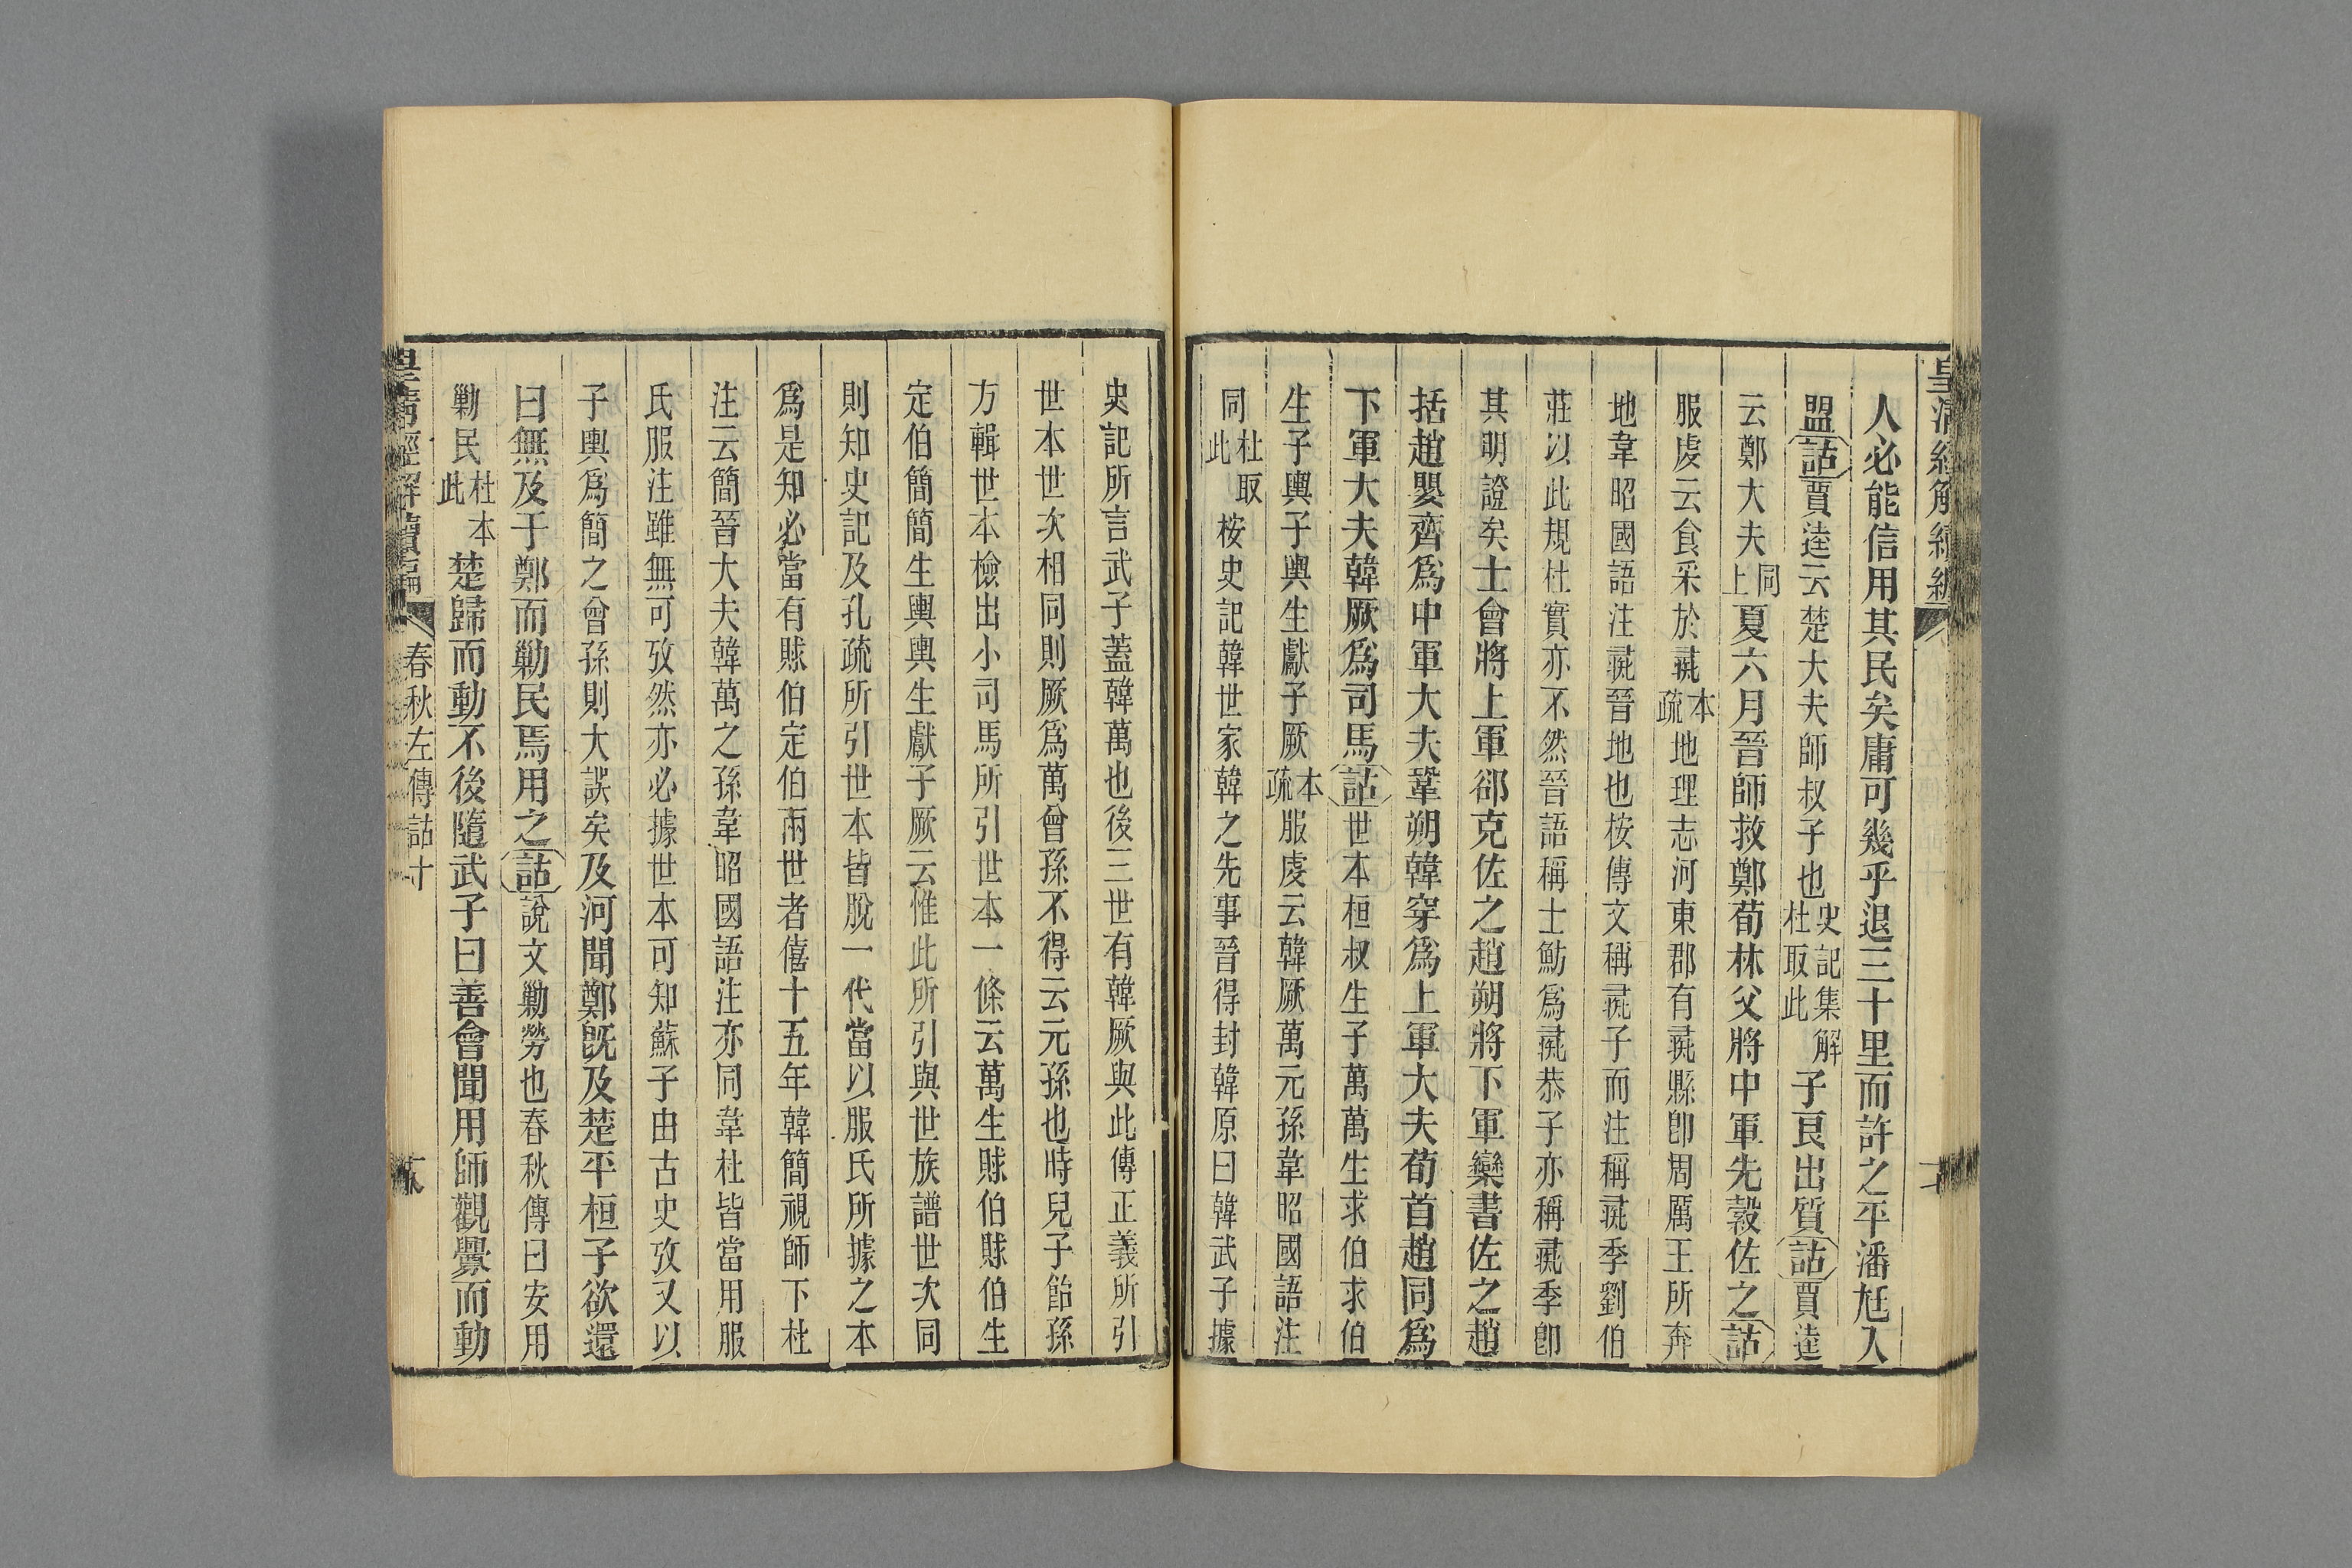 皇清經解續編
人必能信用其民矣庸可幾乎退三十里而許之平潘尪入
盟詁賈逵云楚大夫師叔子也史記集解杜取此子良出質詁賈逵
云鄭大夫同上夏六月晉師救鄭荀林父將中軍先縠佐之詁
服虔云食采於彘本疏地理志河東郡有彘縣卽周厲王所奔
地韋昭國語注彘晉地也桉傳文稱彘子而注稱彘季劉伯
莊以此規杜實亦不然晉語稱士魴爲彘恭子亦稱彘季卽
其明證矣士會將上軍郤克佐之趙朔將下軍欒書佐之趙
括趙嬰齊爲中軍大夫鞏朔韓穿爲上軍大夫荀首趙同爲
下軍大夫韓厥爲司馬詁世本桓叔生子萬萬生求伯求伯
生子輿子輿生獻子厥本疏服虔云韓厥萬元孫韋昭國語注
同杜取此桉史記韓世家韓之先事晉得封韓原曰韓武子據
史記所言武子蓋韓萬也後三世有韓厥與此傳正義所引
世本世次相同則厥爲萬曾孫不得云元孫也時兒子飴孫
方輯世本檢出小司馬所引世本一條云萬生賕伯賕伯生
定伯簡簡生輿輿生獻子厥云惟此所引與世族譜世次同
則知史記及孔疏所引世本皆脫一代當以服氏所據之本
爲是知必當有賕伯定伯兩世者僖十五年韓簡視師下杜
注云簡晉大夫韓萬之孫韋昭國語注亦同韋杜皆當用服
氏服注雖無可攷然亦必據世本可知蘇子由古史攷又以
子輿爲簡之曾孫則大誤矣及河聞鄭旣及楚平桓子欲還
曰無及于鄭而勦民焉用之詁說文勦勞也春秋傳曰安用
勦民杜本此楚歸而動不後隨武子曰善會聞用師觀釁而動
皇淸經解續編 春秋左傳詁十